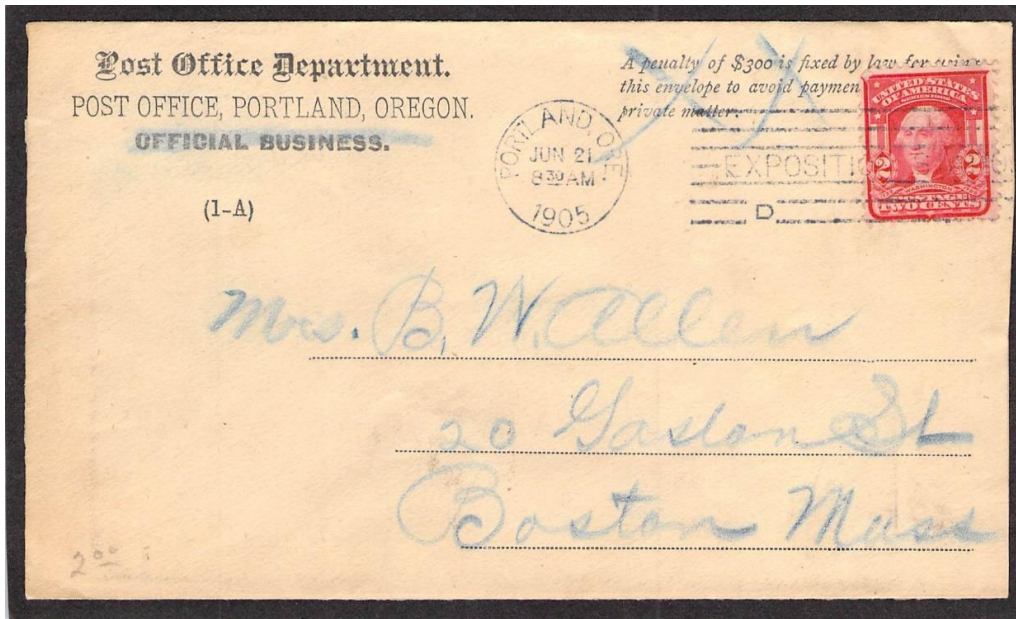 Post Office Department.
POST OFFICE, PORTLAND, OREGON.
OFFICIAL BUSINESS.
(1-A)
A penalty of $300 is fixed by law for using
this envelope to avoid paymen
private matter.
PORTLAND, ORE.
JUN 21
8 30 AM
1905
EXPOSITIO
D
UNITED STATES
OF AMERICA
2 2
WASHINGTON
TWO CENTS
Mrs. B. W. Allen
20 Gaston St
Boston Mass
2 00